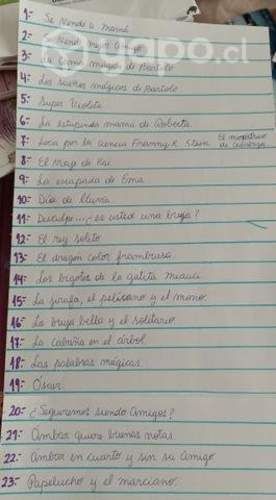 1:- Se vende a Mamá
2:- mejor amigo
3:- La cama mágica de Bartolo
4:- Los sueños mágicos de Bartolo
5:- Super Nicolita
6:- La estupenda mamá de Roberta.
7:- Loca por la ciencia Franny K Stein. El monstruo de calabaza
8:- El Mago de Oz
9:- La escapada de Ema.
10:- Día de lluvia
11:- Disculpe..., ¿es usted una bruja?
12:- El rey solito
13:- El dragón color frambuesa
14:- Los bigotes de la gatita Miauci
15:- La jirafa, el pelícano y el mono.
16:- La bruja bella y el solitario
17:- La cabaña en el árbol
18:- Las palabras mágicas.
19:- Oscar.
20:- ¿Seguiremos siendo Amigos?
21:- Ambar quiere buenas notas
22:- Ambar en cuarto y sin su amigo
23:- Papelucho y el marciano.
yapo.cl